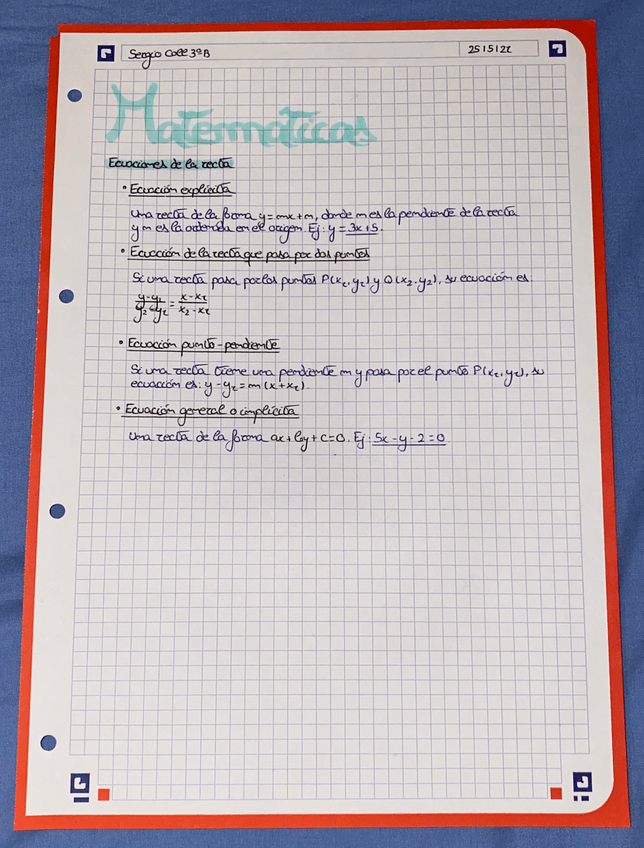 Sergio Coll 3ºB
25/5/22
Matemáticas
Ecuaciones de la recta
• Ecuación explícita
Una recta de la forma y=mx+n, donde m es la pendiente de la recta
y n es la ordenada en el origen. Ej: y=3x+5.
• Ecuación de la recta que pasa por dos puntos
Si una recta pasa por los puntos P(x₁,y₁) y Q(x₂,y₂), su ecuación es
y-y₁/y₂-y₁ = x-x₁/x₂-x₁
• Ecuación punto-pendiente
Si una recta tiene una pendiente m y pasa por el punto P(x₁,y₁), su
ecuación es: y-y₁=m(x+x₁)
• Ecuación general o implícita
Una recta de la forma ax+by+c=0. Ej: 5x-y-2=0